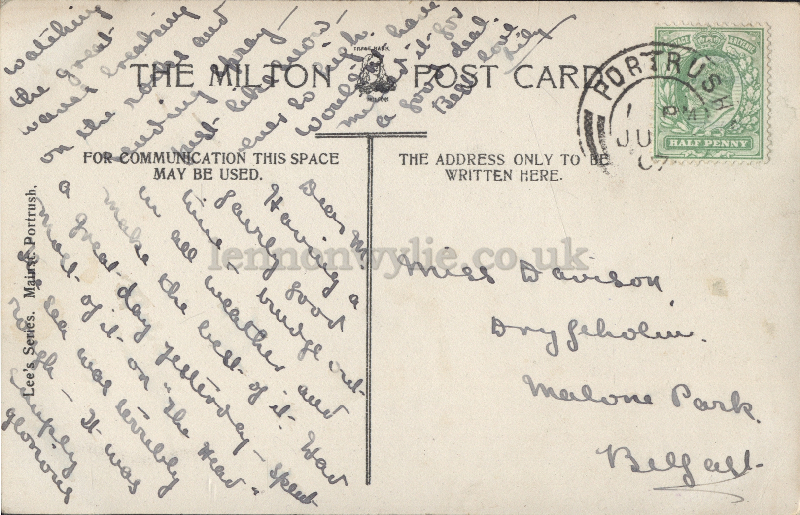 THE MILTON POST CARD
TRADE MARK
FOR COMMUNICATION THIS SPACE
MAY BE USED.
THE ADDRESS ONLY TO BE
WRITTEN HERE.
PORTRUSH
PM
JU
07
HALF PENNY
Lee's Series. Mainst. Portrush.
lennonwylie.co.uk
Miss Davison,
Malone Park.
Belfast
Dear M.
Having a
fairly good
time – trudge out
in all weather and
make the best of it. Had
a great day yesterday – spent
most of it on "The Head"
sea was terribly
rough – It was
simply
glorious
watching
the great
waves breaking
on the rocks and
sending spray
just like snow
ever so high.
Wouldn't have
missed it for
a good deal.
Best love
Lily